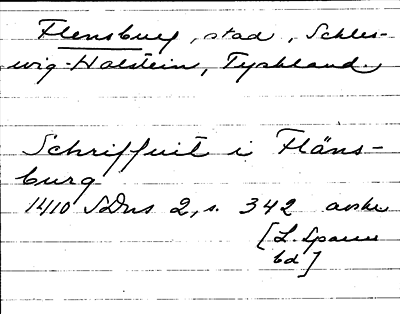 Flensburg, stad, Schles-
wig-Holstein, Tyskland.
Schriffuit i Fläns-
burg
1410 SDns 2, s. 342 avskr
[L. Sparre
bd]